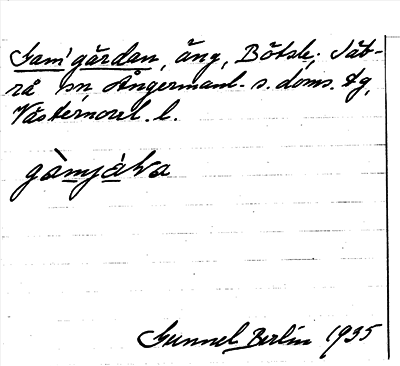 Gam'gärdan, äng, Bölsle; Säb-
rå sn, Ångermanl. s. doms. tg,
Västernorrl. l.
gàmjàḷa
Gunnel Berlin 1935